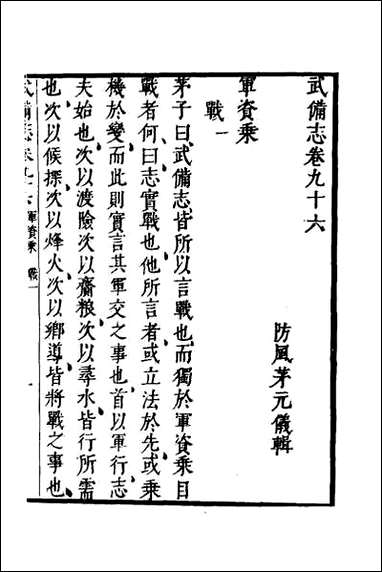 武備志卷九十六
防風茅元儀輯
軍資乘
戰一
茅子曰武備志皆所以言戰也而獨於軍資乘目
戰者何曰志實戰也他所言者或立法於先或乘
機於變而此則實言其軍交之事也首以軍行志
夫始也次以渡險次以齎粮次以尋水皆行所需
也次以候探次以烽火次以鄉導皆將戰之事也
武備志卷九十六 軍資乘 戰一 一